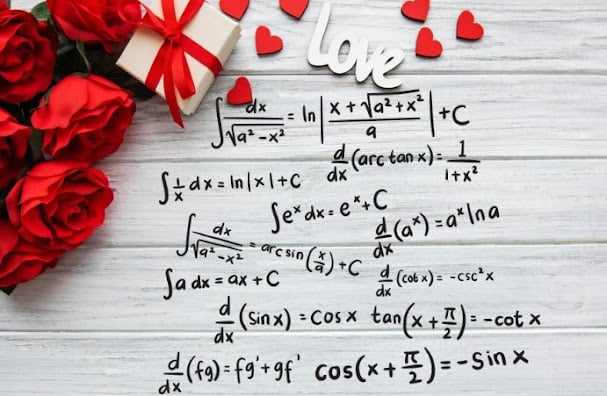 Love
∫ dx/√(a²-x²) = ln |(x + √(a²+x²))/a| + C
d/dx (arc tan x) = 1/(1+x²)
∫ 1/x dx = ln|x| + C
∫ eˣ dx = eˣ + C
d/dx (aˣ) = aˣ ln a
∫ dx/√(a²-x²) = arc sin (x/a) + C
∫ a dx = ax + C
d/dx (cot x) = -csc² x
d/dx (sin x) = cos x
tan(x + π/2) = -cot x
d/dx (fg) = fg' + gf'
cos(x + π/2) = -sin x